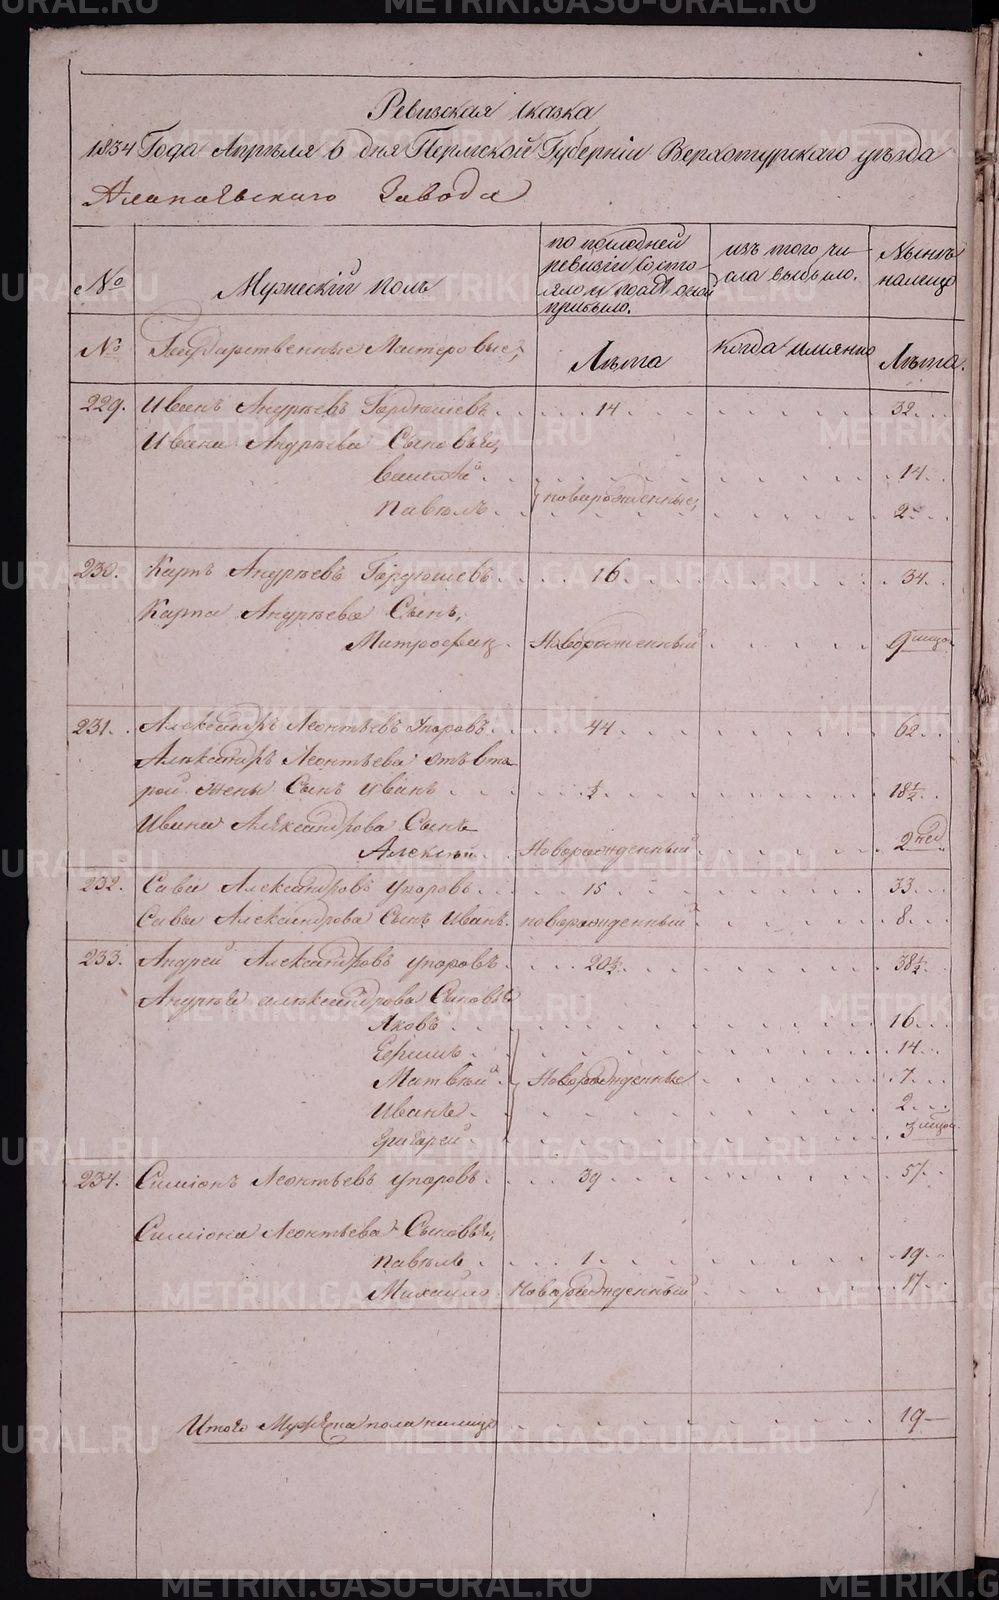 Ревизская сказка
1834 Года Апреля 6 дня Пермской Губернiи Верхотурскаго уезда
Алапаевскаго Завода
№ Мужескiй полъ по последней ревизiи состояло и после оной прибыло. изъ того числа выбыло. Ныне налицо
№ Государственные Мастеровые, Лета когда имянно Лета.
229. Иванъ Андреевъ Гордюшевъ 14 32
Ивана Андреева Сыновья,
Василiй 14
новорожденные,
Павелъ 2
230. Карпъ Андреевъ Гордюшевъ 16 34
Карпа Андреева Сынъ,
Митрофанъ Новорожденный 9 месяц
231. Александръ Леонтьевъ Упоровъ 44 62
Александръ Леонтьева отъ вто
рой жены Сынъ Иванъ ½ 18½
Ивана Александрова Сынъ
Алексей Новорожденный 2 нед
232. Сава Александровъ упоровъ 15 33
Савы Александрова Сынъ Иванъ новорожденный 8
233. Андрей Александровъ упоровъ 20½ 38½
Андрея александрова Сыновья
Яковъ 16
14
Матвей Новорожденные 7
Иванъ 2
Григорей 3 месяц
234. Симiонъ Леонтьевъ упоровъ 39 57
Симiона Леонтьева Сыновья,
Павелъ 1 19
Михайло Новорожденный 17
Итого Мужеска пола налицо 19
METRIKI.GASO-URAL.RU